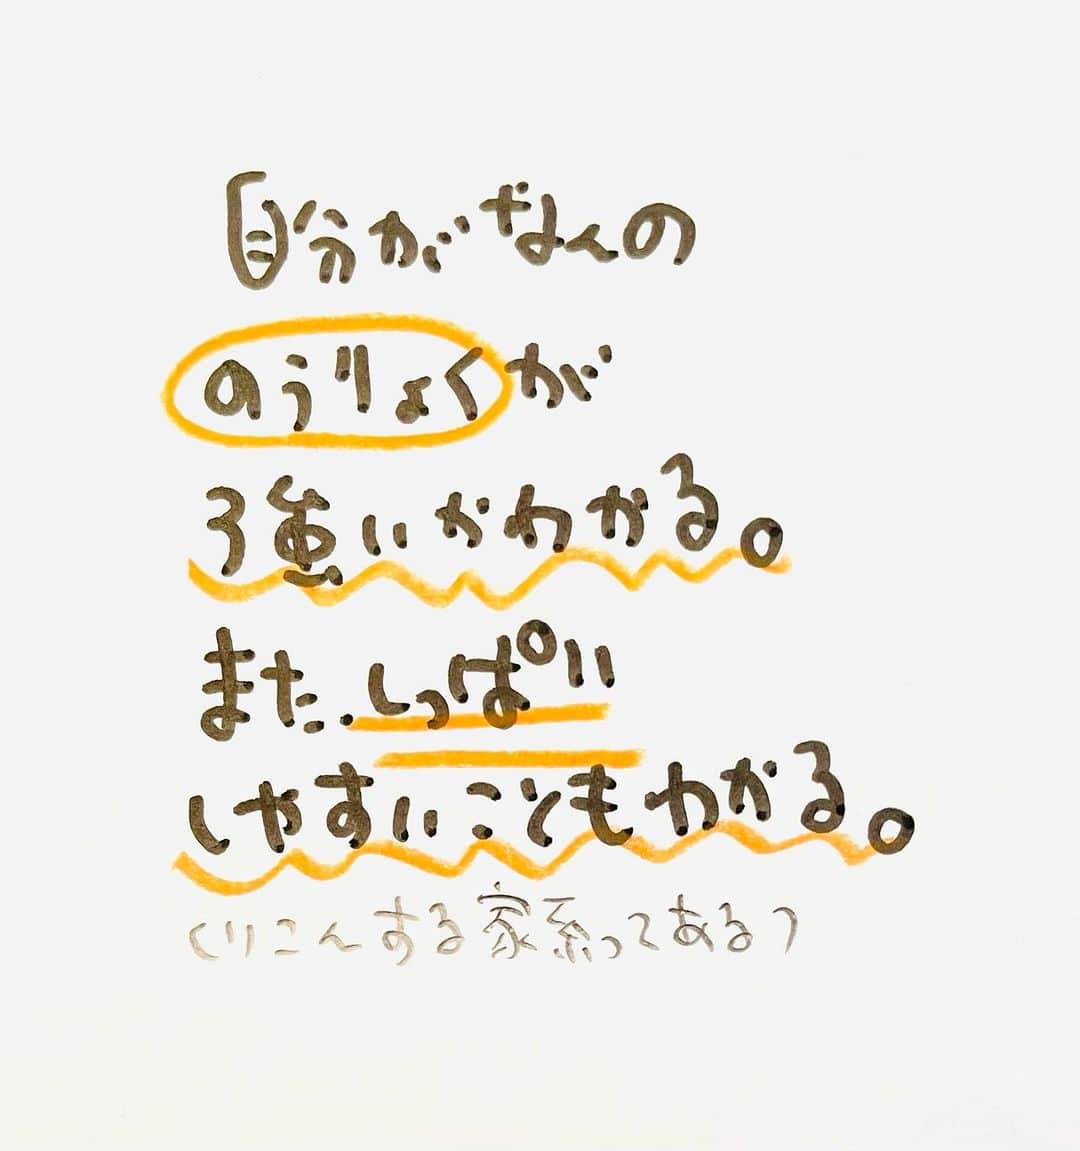 自分がなんの
のうりょくが
強いかわかる。
また.しっぱい
しやすいこともわかる。
(りこんする家系ってある)